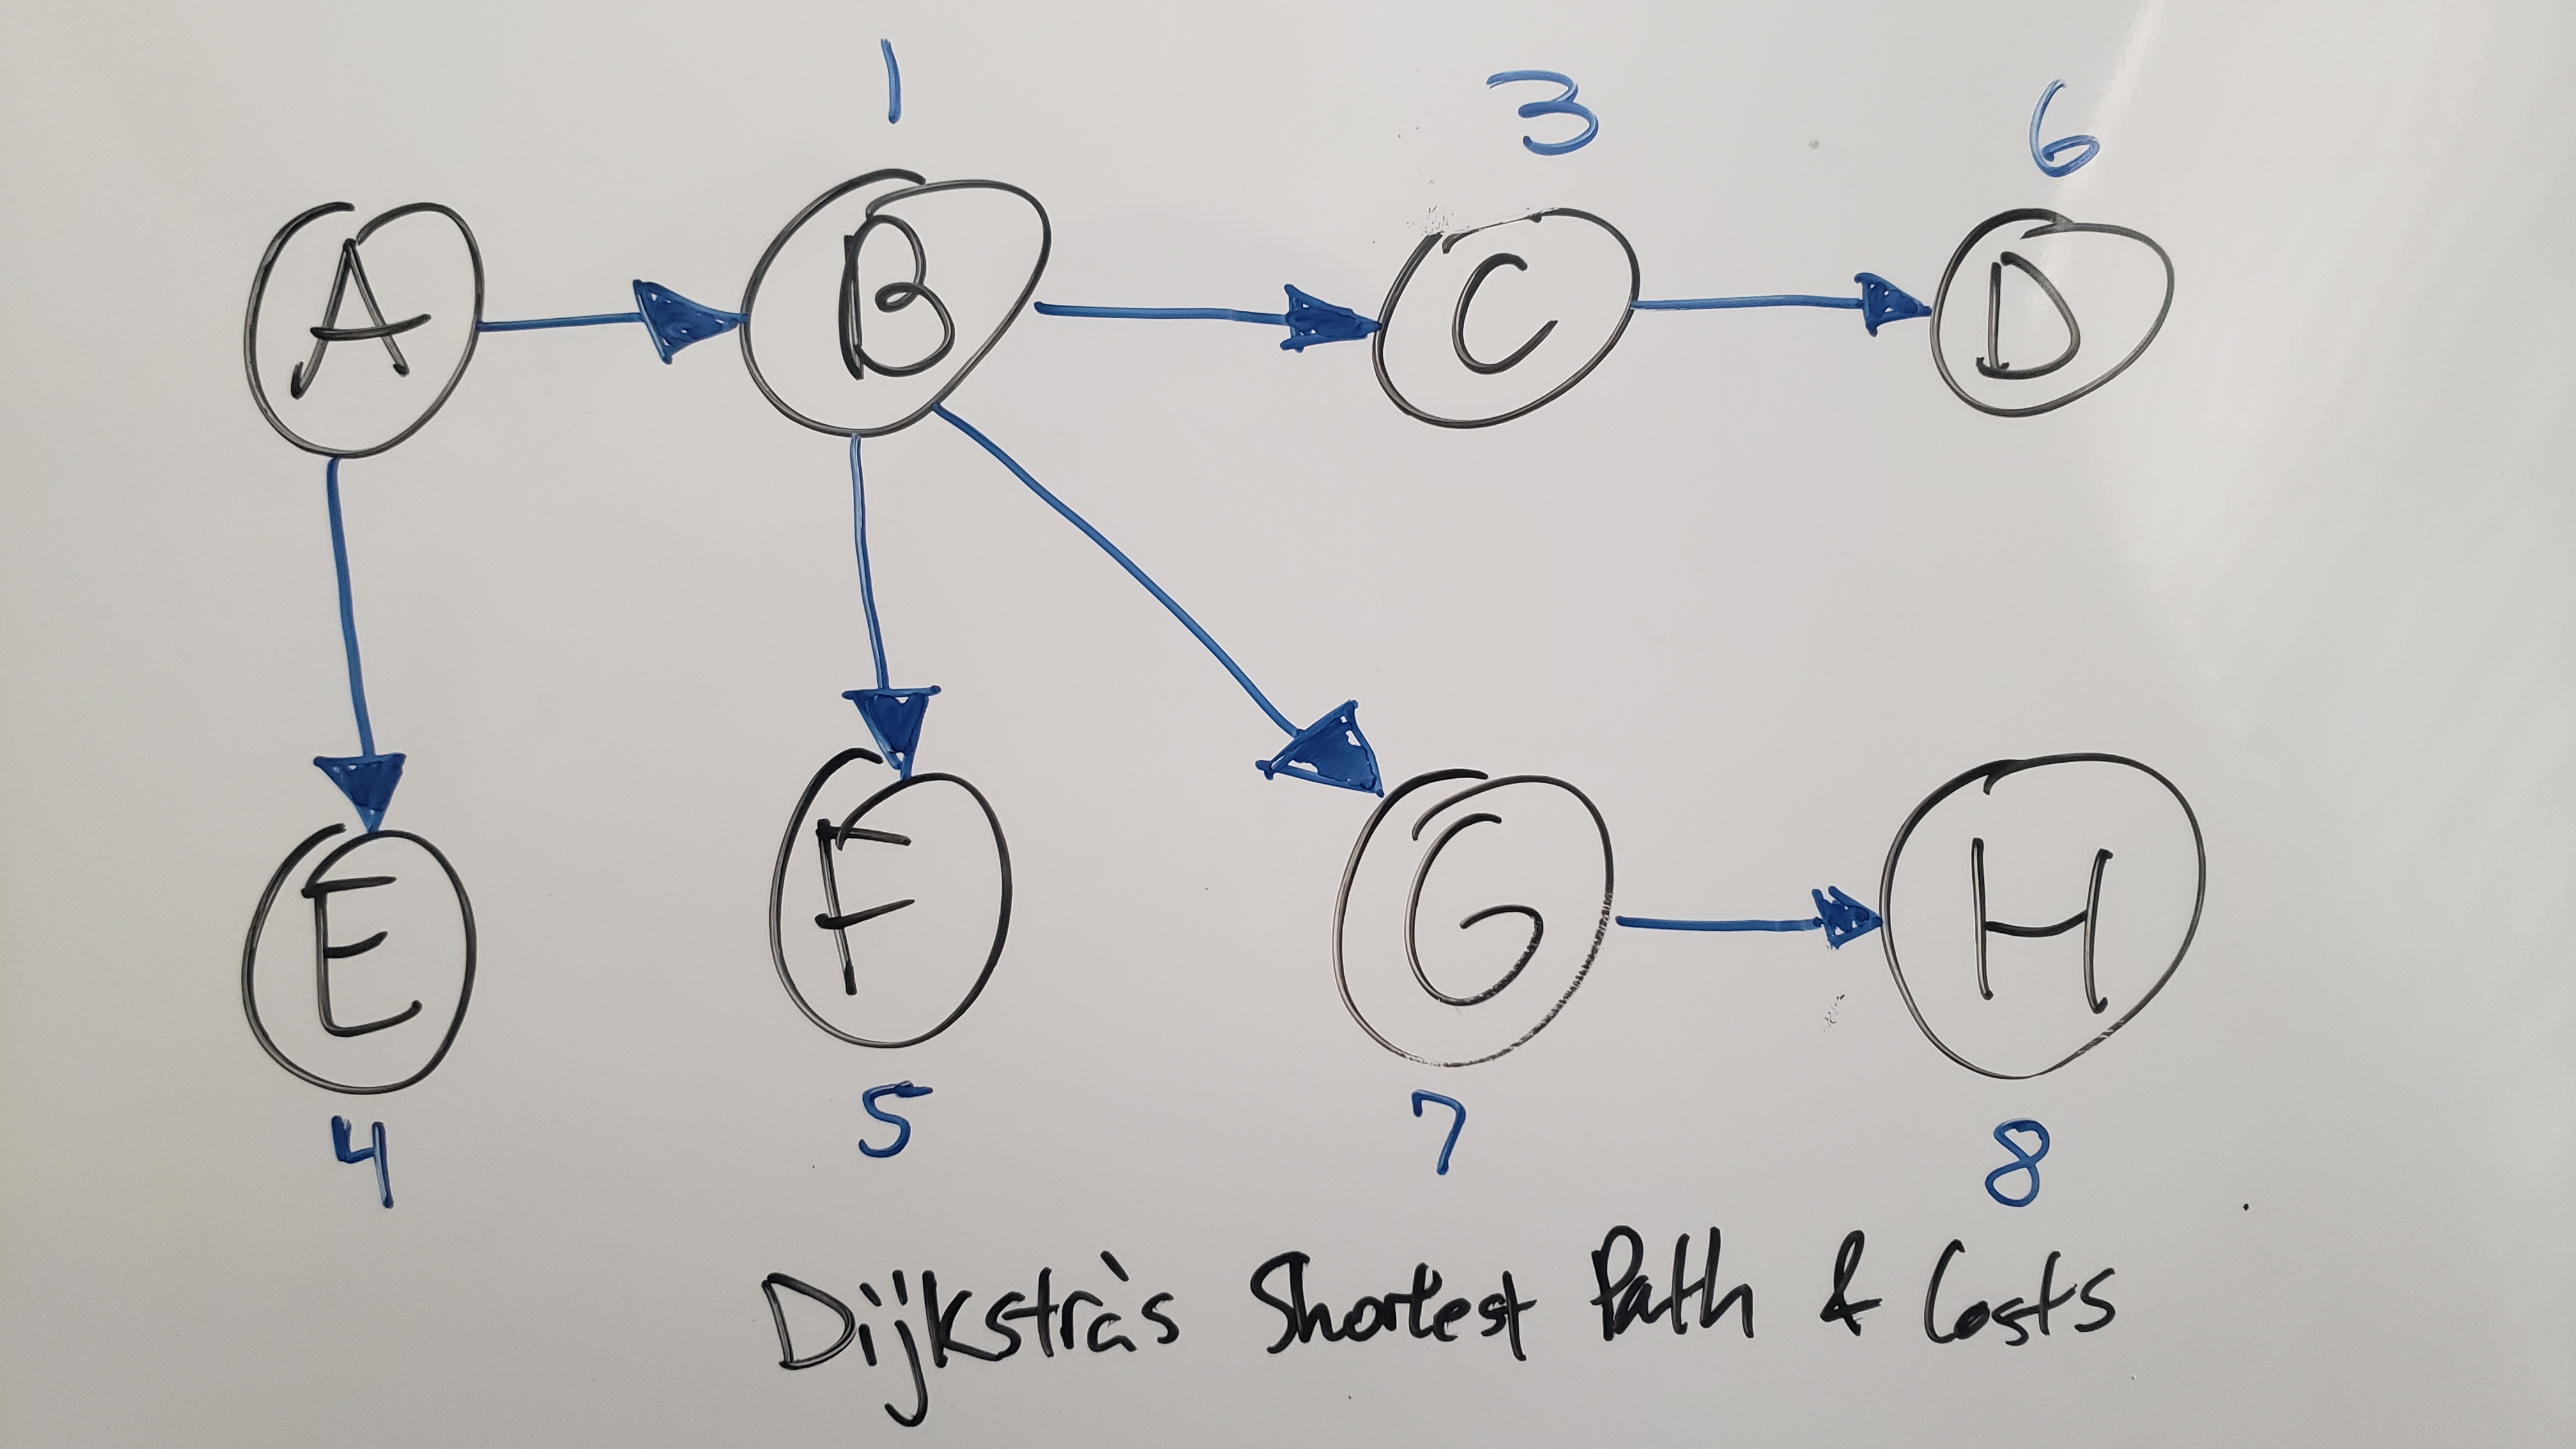 1 3 6
A B C D
E F G H
4 5 7 8
Dijkstra's Shortest Path & Costs